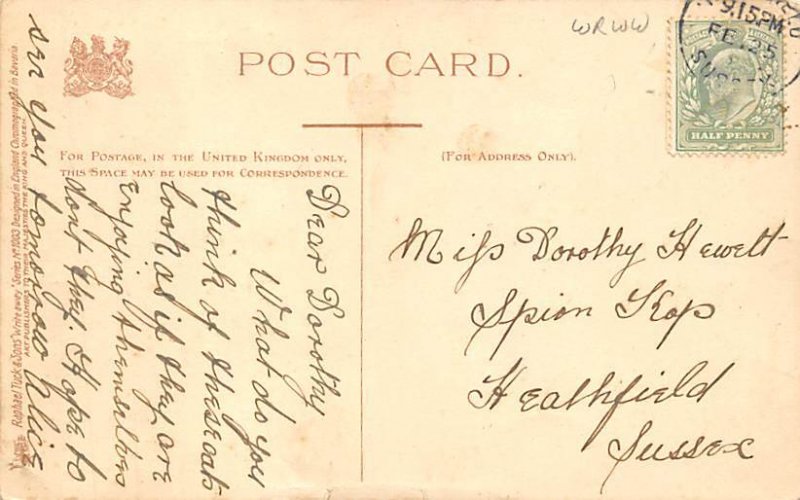 WRWW
9.15PM
FE 25
POST CARD.
HALF PENNY
FOR POSTAGE, IN THE UNITED KINGDOM ONLY,
THIS SPACE MAY BE USED FOR CORRESPONDENCE.
(FOR ADDRESS ONLY).
Dear Dorothy
What do you
think of these cats
look as if they are
enjoying themselves
dont they. Hope to
see you tomorrow Alice
Miss Dorothy Hewett
Spion Kop
Heathfield
Sussex
Raphael Tuck & Sons "Write away" Series No 1003 Designed in England Chromographed in Bavaria
ART PUBLISHERS TO THEIR MAJESTIES THE KING AND QUEEN